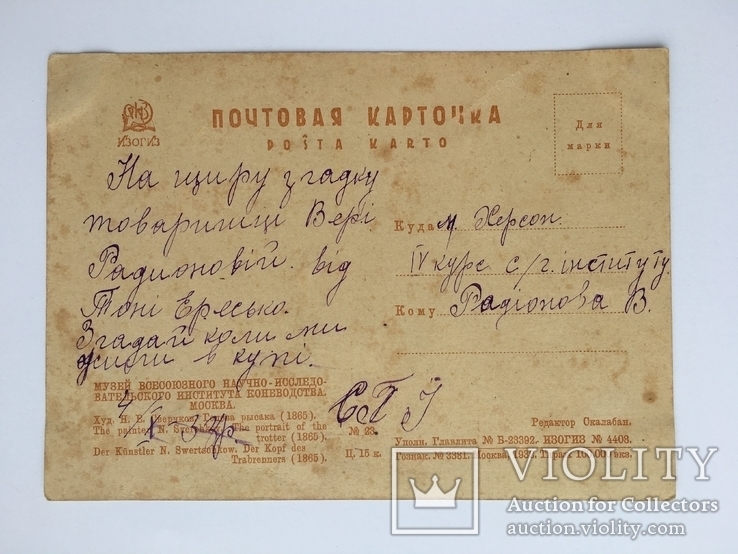 ИЗОГИЗ
ПОЧТОВАЯ КАРТОЧКА
POŜTA KARTO
Для
марки
На щиру згадку
товаришці Вері
Радионовій від
Тоні Ересько.
Згадай коли ми
жили в купі.
Куда м. Херсон
IV курс с/г. інституту
Кому Радіонова В.
МУЗЕЙ ВСЕСОЮЗНОГО НАУЧНО-ИССЛЕДО-
ВАТЕЛЬСКОГО ИНСТИТУТА КОНЕВОДСТВА.
МОСКВА.
Худ. Н. Е. Сверчков. Голова рысака (1865).
The painter N. Swertchkow. The portrait of the
trotter (1865).
Der Künstler N. Swertschkow. Der Kopf des
Trabrenners (1865).
№ 23.
Ц. 15 к.
СГІ
Редактор Скалабан.
Уполн. Главлита № Б-23392. ИЗОГИЗ № 4408.
Гознак. № 3381. Москва, Тираж 100.000 экз.
VIOLITY
Auction for Collectors
auction.violity.com